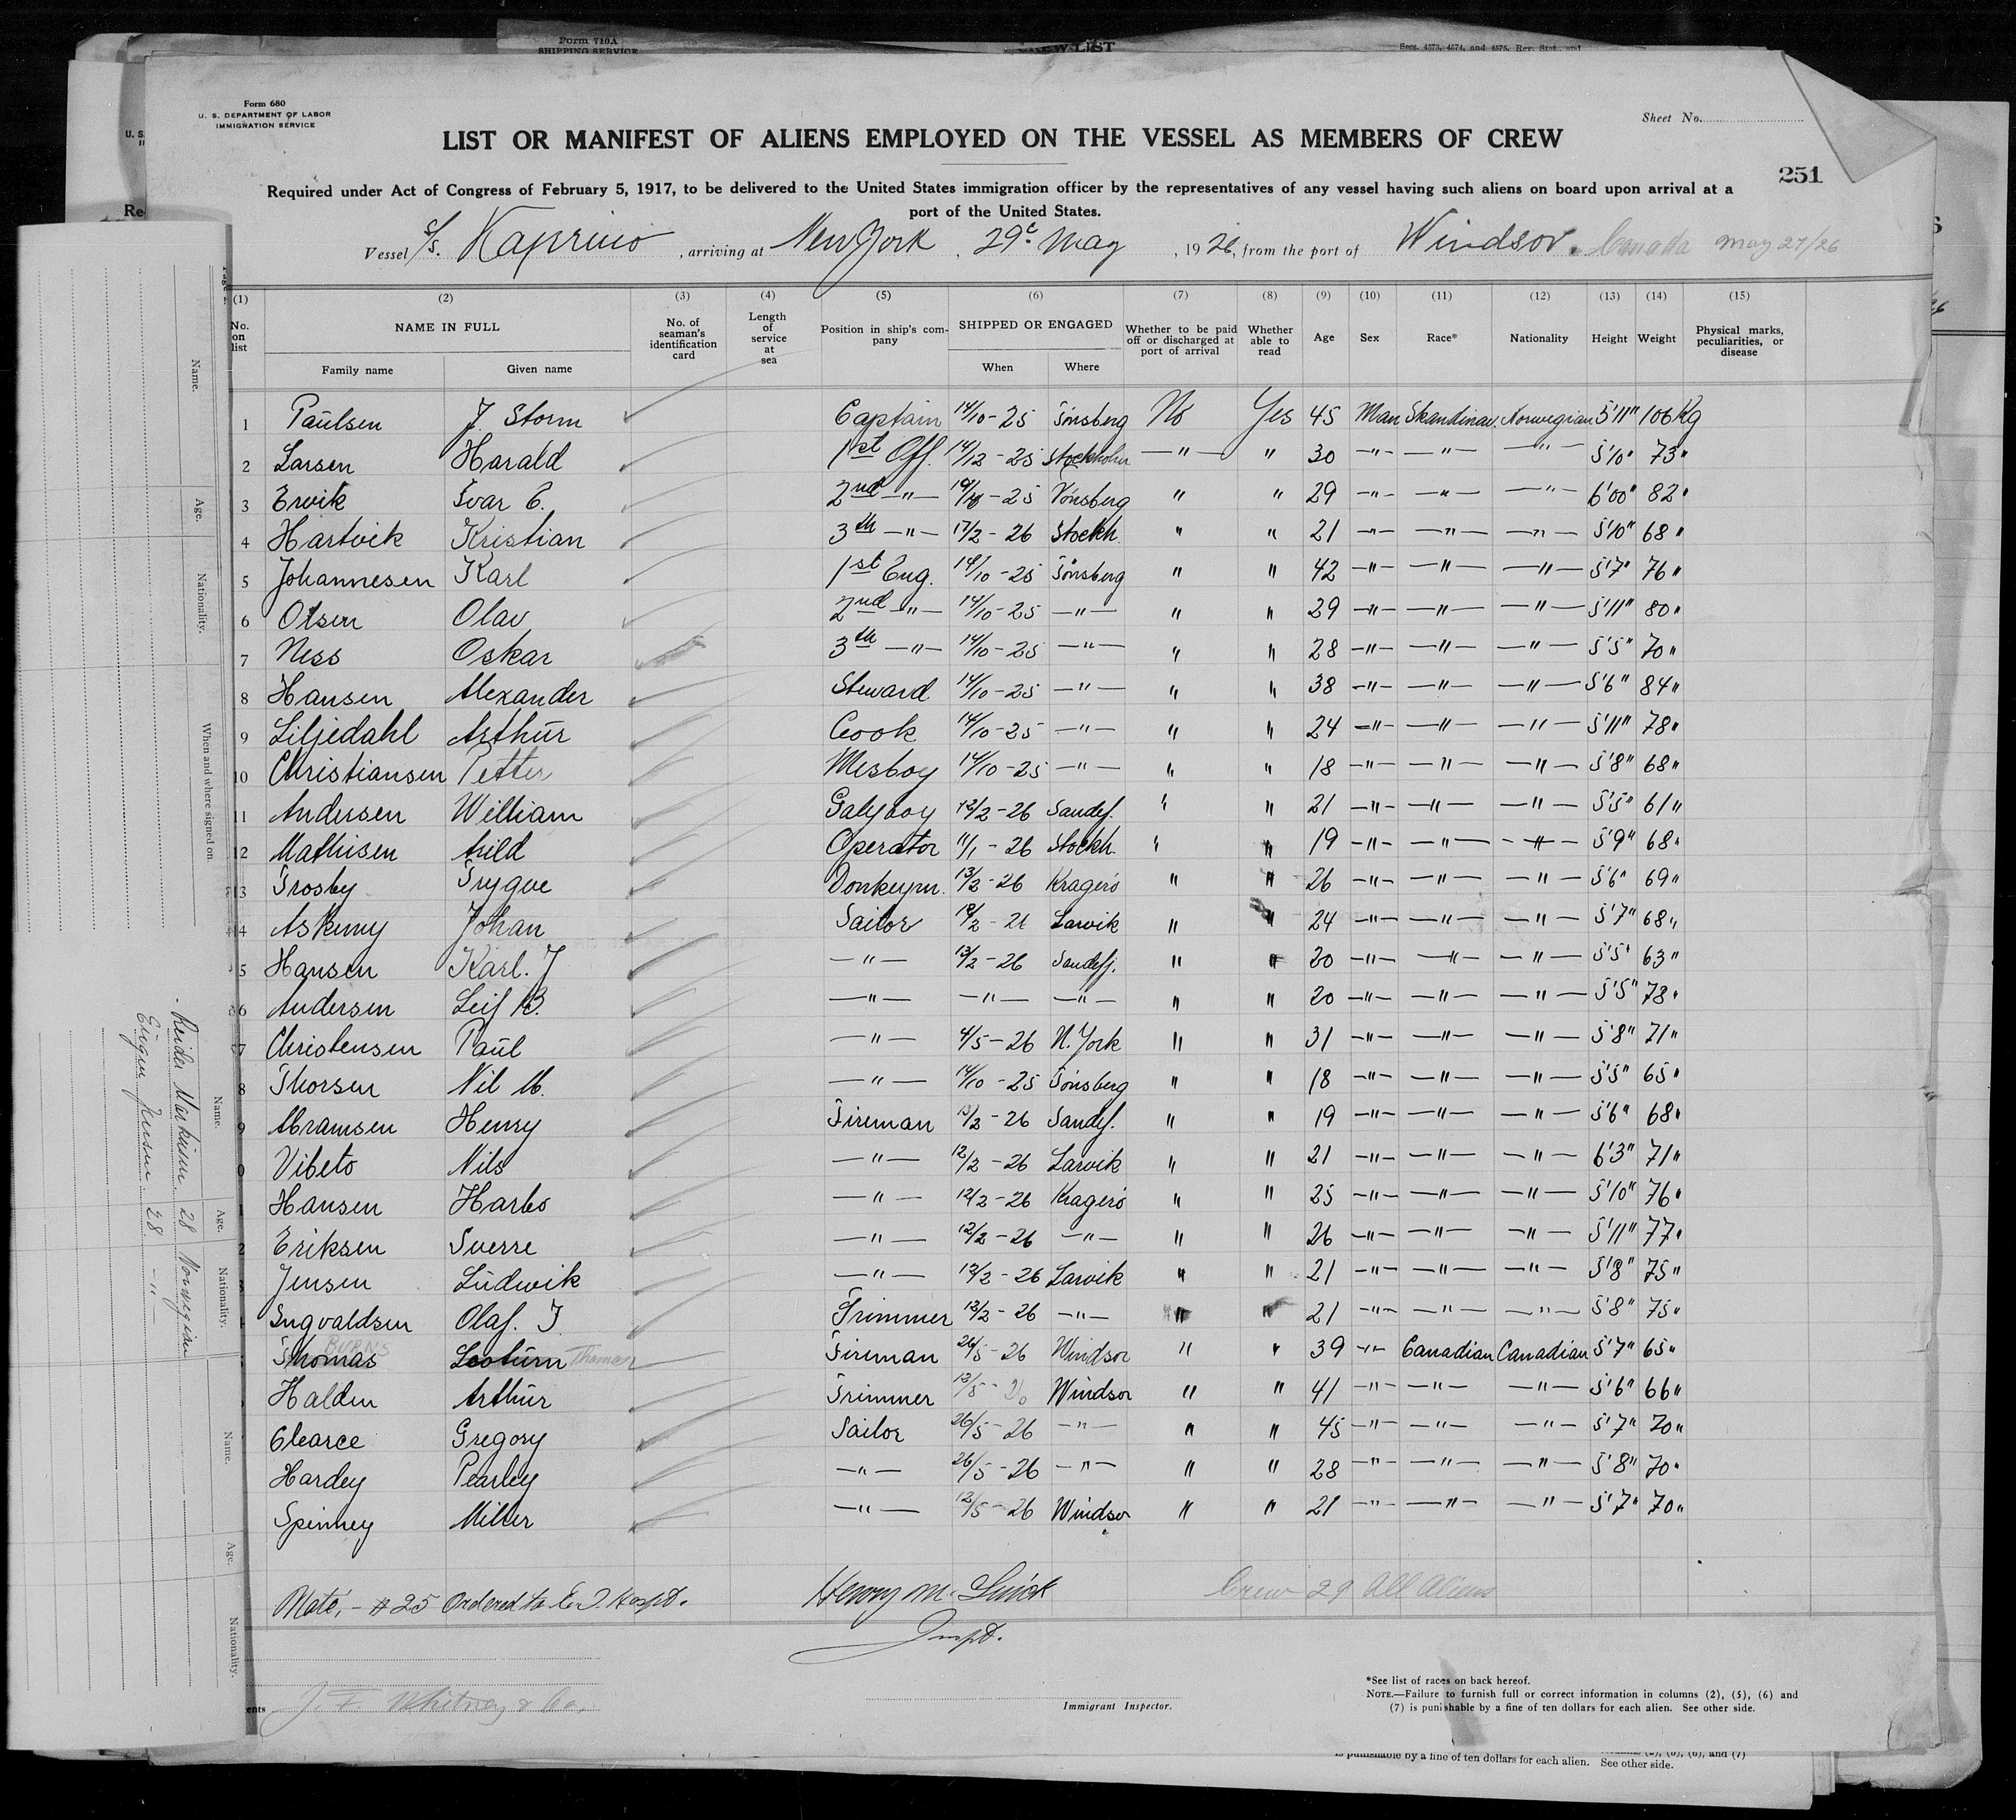 Form 710A
SHIPPING SERVICE
CREW LIST
Secs. 4573, 4574, and 4575, Rev. Stat., and
Form 680
U. S. DEPARTMENT OF LABOR
IMMIGRATION SERVICE
Sheet No.
LIST OR MANIFEST OF ALIENS EMPLOYED ON THE VESSEL AS MEMBERS OF CREW
251
Required under Act of Congress of February 5, 1917, to be delivered to the United States immigration officer by the representatives of any vessel having such aliens on board upon arrival at a
port of the United States.
Vessel S/S. Kaprino, arriving at New York, 29. May, 1926, from the port of Windsor. Canada May 27/26
(1) (2) (3) (4) (5) (6) (7) (8) (9) (10) (11) (12) (13) (14) (15)
No. on list NAME IN FULL Family name Given name No. of seaman's identification card Length of service at sea Position in ship's company SHIPPED OR ENGAGED When Where Whether to be paid off or discharged at port of arrival Whether able to read Age Sex Race* Nationality Height Weight Physical marks, peculiarities, or disease
1 Paulsen J. Storm Captain 14/10-25 Tönsberg No Yes 45 Man Skandinav. Norwegian 5'11" 106 Kg
2 Larsen Harald 1st Off. 14/12-25 Stockholm —"— " 30 —"— —"— —"— 5'10" 73"
3 Ervik Ivar E. 2nd —"— 14/10-25 Tönsberg " " 29 —"— —"— —"— 6'00" 82"
4 Hartvik Kristian 3th —"— 17/2-26 Stockh. " " 21 —"— —"— —"— 5'10" 68"
5 Johannesen Karl 1st Eng. 14/10-25 Tönsberg " " 42 —"— —"— —"— 5'7" 76"
6 Olsen Olav 2nd —"— 14/10-25 —"— " " 29 —"— —"— —"— 5'11" 80"
7 Ness Oskar 3th —"— 14/10-25 —"— " " 28 —"— —"— —"— 5'5" 70"
8 Hansen Alexander Steward 14/10-25 —"— " " 38 —"— —"— —"— 5'6" 84"
9 Liljedahl Arthur Cook 14/10-25 —"— " " 24 —"— —"— —"— 5'11" 78"
10 Christiansen Petter Mesboy 14/10-25 —"— " " 18 —"— —"— —"— 5'8" 68"
11 Andersen William Galyboy 12/2-26 Sandef. " " 21 —"— —"— —"— 5'5" 61"
12 Mathisen Arild Operator 11/1-26 Stockh. " " 19 —"— —"— —"— 5'9" 68"
13 Trosby Trygve Donkeym. 13/2-26 Kragerö " " 26 —"— —"— —"— 5'6" 69"
14 Johan Sailor 12/2-26 Larvik " " 24 —"— —"— —"— 5'7" 68"
5 Hansen Karl. J —"— 13/2-26 Sandefj. " " 20 —"— —"— —"— 5'5" 63"
6 Andersen Leif B. —"— —"— —"— " " 20 —"— —"— —"— 5'5" 78"
7 Christensen Paul —"— 4/5-26 N. York " " 31 —"— —"— —"— 5'8" 71"
8 Thorsen Nil M. —"— 14/10-25 Tönsberg " " 18 —"— —"— —"— 5'5" 65"
9 Abramsen Henry Fireman 13/2-26 Sandf. " " 19 —"— —"— —"— 5'6" 68"
0 Vibeto Nils —"— 12/2-26 Larvik " " 21 —"— —"— —"— 6'3" 71"
1 Hansen Harbo —"— 12/2-26 Kragerö " " 25 —"— —"— —"— 5'10" 76"
2 Eriksen Sverre —"— 12/2-26 —"— " " 26 —"— —"— —"— 5'11" 77"
Jensen Ludwik —"— 12/2-26 Larvik " " 21 —"— —"— —"— 5'8" 75"
Ingvaldsen Olaf. J. Trimmer 12/2-26 —"— " " 21 —"— —"— —"— 5'8" 75"
BURNS
Thomas Thomas Fireman 26/5-26 Windsor " " 39 —"— Canadian Canadian 5'7" 65"
Halden Arthur Trimmer 12/5- Windsor " " 41 —"— —"— —"— 5'6" 66"
Clearce Gregory Sailor 26/5-26 —"— " " 45 —"— —"— —"— 5'7" 70"
Hardey Pearley —"— 26/5-26 —"— " " 28 —"— —"— —"— 5'8" 70"
Spinney Miller —"— 12/5-26 Windsor " " 21 —"— —"— —"— 5'7" 70"
Note,- #25 Ordered to E. I. Hospt. Henry M. Crew 29 All Aliens
Inspt.
J. F. Whitney & Co.
ents
Immigrant Inspector.
*See list of races on back hereof.
NOTE.—Failure to furnish full or correct information in columns (2), (5), (6) and
(7) is punishable by a fine of ten dollars for each alien. See other side.
is punishable by a fine of ten dollars for each alien. See other side.
Name. Age. Nationality. When and where signed on.
Name. Age. Nationality.
Reidar Markusen. 28 Norwegian
Eigen Jensen. 28 —"—
Name. Age. Nationality.